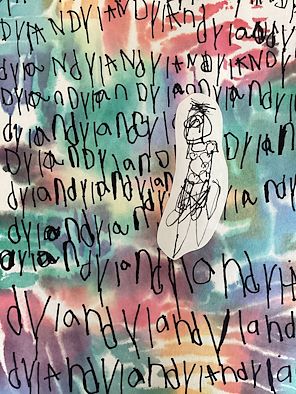 DYlANDYlANDyland
dylandylANDYlANDYlAND
DYlanDylanDYlan DYlAN
DYlandylandylan DYlan
DYlanDYland DYlan
dylandylan dylan
dylandylan dylan
dylandylandylandy
dylandylandyland
dylandylandylandylan